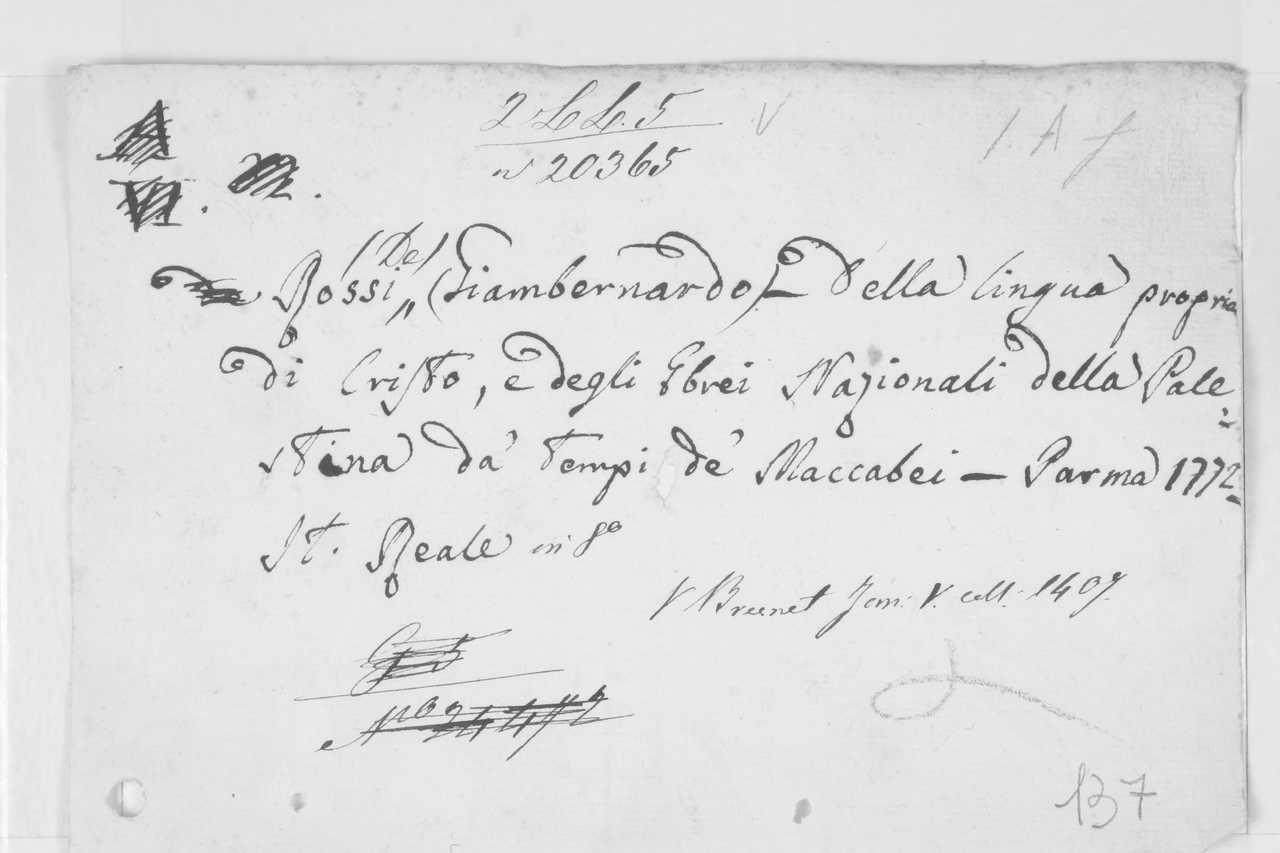 2 L L. 5 V 1. A f
n 20365
Rossi (De) „ (Giambernardo) – Della lingua propria
di Cristo, e degli Ebrei Nazionali della Pale
stina da' tempi de' Maccabei – Parma 1772
St. Reale in 8º
V Brunet Tom: V. coll: 1407.
137